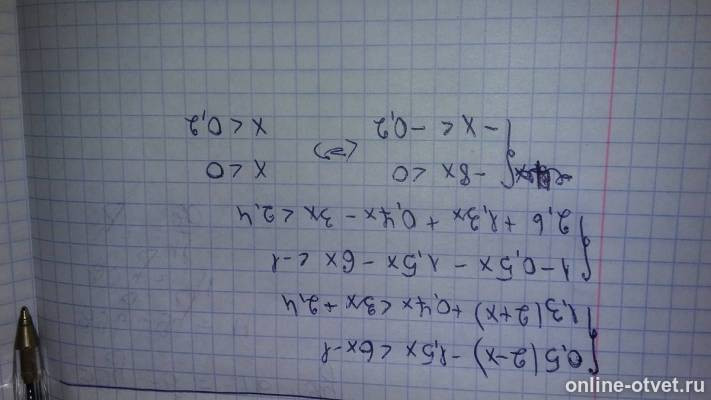 {0,5(2-x) - 1,5x < 6x-1
1,3(2+x) + 0,4x < 3x + 2,4
{1 - 0,5x - 1,5x - 6x < -1
2,6 + 1,3x + 0,4x - 3x < 2,4
{-8x < 0 (=) x > 0
-x < -0,2 x > 0,2
online-otvet.ru